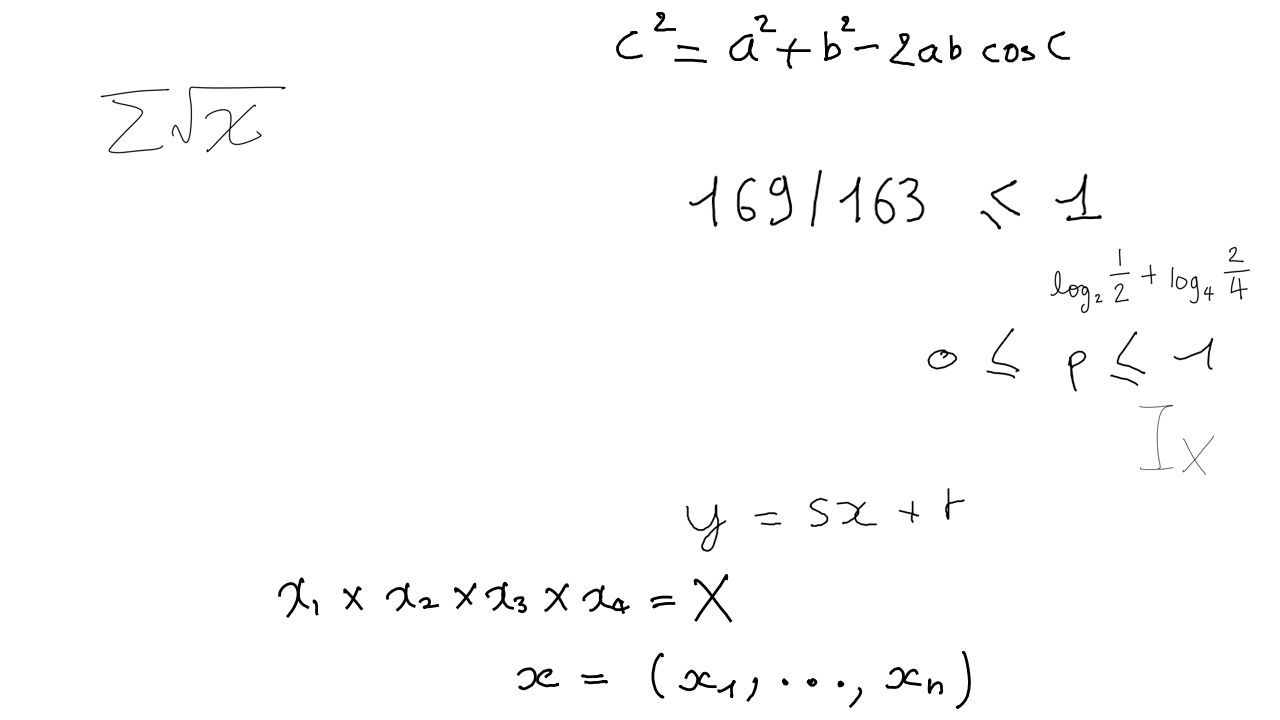 c² = a² + b² - 2ab cos C
∑√x
169/163 ≤ 1
log₂ 1/2 + log₄ 2/4
0 ≤ p ≤ 1
I_x
y = sx + t
x₁ × x₂ × x₃ × x₄ = X
x = (x₁, ..., xₙ)